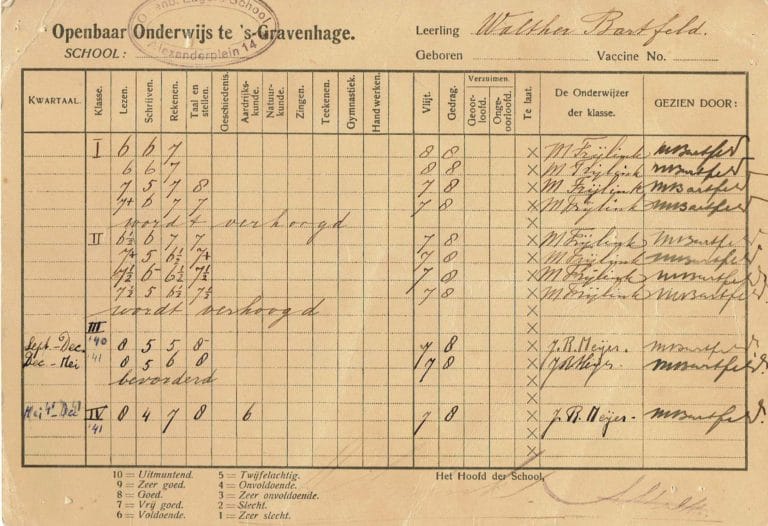 Openb. Lagere School
Alexanderplein 14
Openbaar Onderwijs te 's-Gravenhage.
Leerling Walther Bartfeld.
SCHOOL:
Geboren Vaccine No.
KWARTAAL. Klasse. Lezen. Schrijven. Rekenen. Taal en stellen. Geschiedenis. Aardrijkskunde. Natuurkunde. Zingen. Teekenen. Gymnastiek. Handwerken. Vlijt. Gedrag. Verzuimen. Geoorloofd. Ongeoorloofd. Te laat. De Onderwijzer der klasse. GEZIEN DOOR:
I 6 6 7 8 8 × M Frijlink MBartfeld
6 6 7 8 8 × M Frijlink MBartfeld
7 5 7 8 7 8 × M Frijlink MBartfeld
7+ 6 7 7 7 8 × M Frijlink MBartfeld
wordt verhoogd ×
II 6½ 6 7 7 7 8 × M Frijlink MBartfeld
7+ 5 6½ 7+ 7 8 × M Frijlink MBartfeld
7½ 6- 6½ 7½ 7 8 × M Frijlink MBartfeld
7½ 5 6½ 7½ 7 8 × M Frijlink MBartfeld
wordt verhoogd ×
III ×
Sept.-Dec. '40 8 5 5 8- 7 8 × J.R. Meijer. MBartfeld
Dec.-Mei '41 8 5 6 8 7 8 × J.R. Meijer. MBartfeld
bevorderd ×
Mei '41-Dec '41 IV '41 8 4 7 8 6 7 8 × J. R. Meijer. MBartfeld
10 = Uitmuntend. 5 = Twijfelachtig. Het Hoofd der School,
9 = Zeer goed. 4 = Onvoldoende.
8 = Goed. 3 = Zeer onvoldoende.
7 = Vrij goed. 2 = Slecht.
6 = Voldoende. 1 = Zeer slecht.